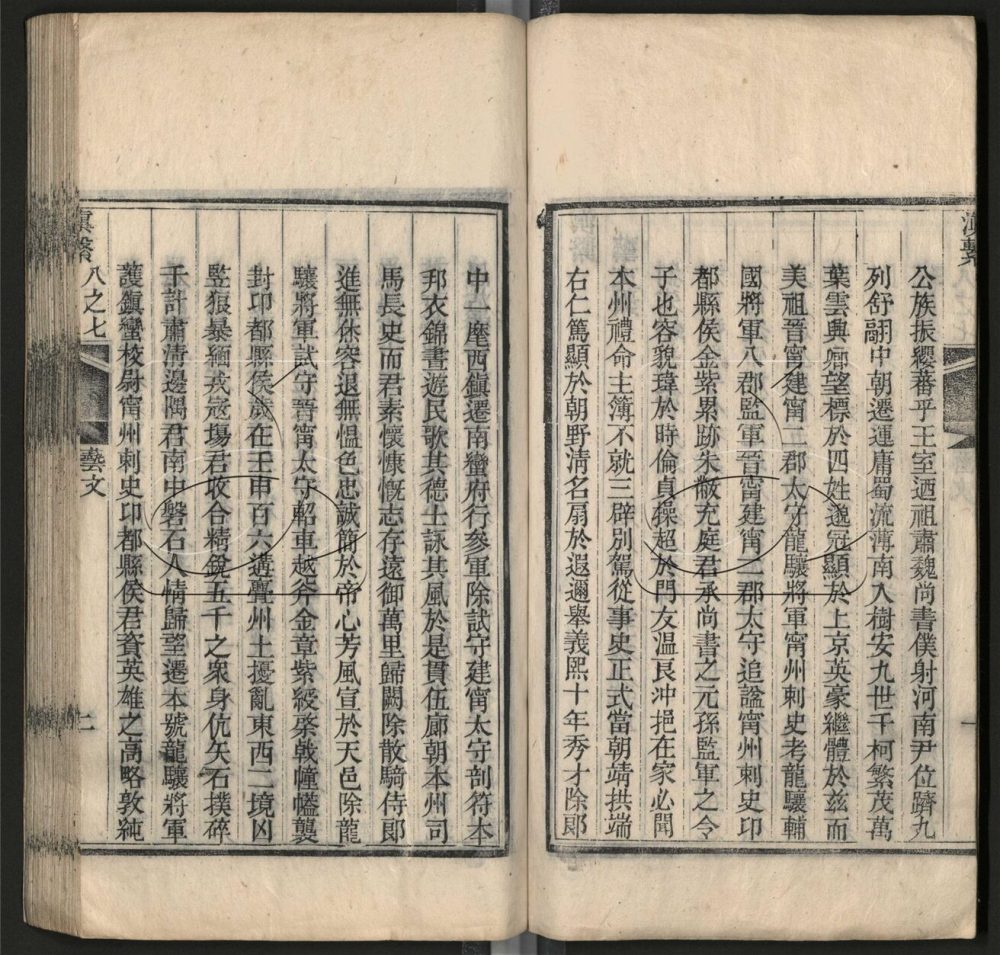 滇繫
公族振纓蕃乎王室迺祖肅魏尚書僕射河南尹位躋九
列舒翮中朝遷運庸蜀流薄南入樹安九世千柯繁茂萬
葉雲興鄉望標於四姓邈冠顯於上京英豪繼體於兹而
美祖晉甯建甯二郡太守龍驤將軍甯州刺史考龍驤輔
國將軍八郡監軍晉甯建甯二郡太守追諡甯州刺史卭
都縣侯金紫累跡朱敝充庭君承尚書之元孫監軍之令
子也容貌瑋於時倫貞操超於門友温良沖挹在家必聞
本州禮命主簿不就三辟別駕從事史正式當朝靖拱端
右仁篤顯於朝野清名扇於遐邇舉義熙十年秀才除郞
中一麾西鎮遷南蠻府行參軍除試守建甯太守剖符本
邦衣錦晝遊民歌其德士詠其風於是貫伍廊朝本州司
馬長史而君素懷慷慨志存遠御萬里歸闕除散騎侍郞
進無烋容退無慍色忠誠簡於帝心芳風宣於天邑除龍
驤將軍試守晉甯太守軺車越斧金章紫綬棨戟幢幰襲
封卭都縣侯歲在壬申百六遘舋州土擾亂東西二境凶
豎狼暴緬戎寇塲君收合精銳五千之衆身伉矢石撲碎
千計肅清邊隅君南中磐石人情歸望遷本號龍驤將軍
護鎮蠻校尉甯州刺史卭都縣侯君資英雄之高略敦純
滇繫 八之七 藝文 二